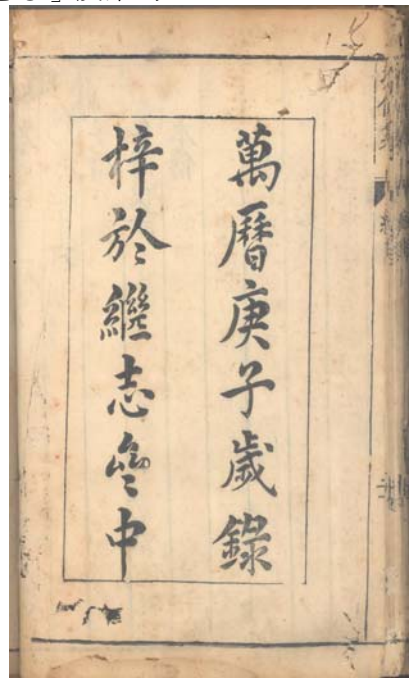 萬曆庚子歲錄
梓於繼志齋中